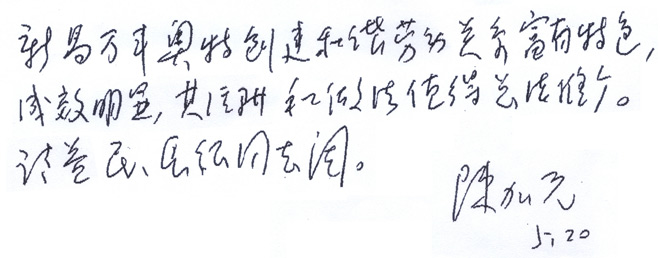 新昌万丰奥特创建和谐劳动关系富有特色,
成效明显,其经验和做法值得总结推广。
请益民、同志阅。
陈加元
5.20